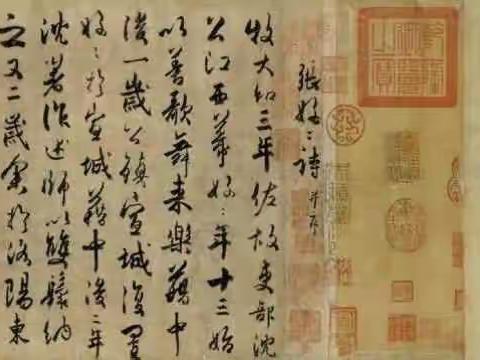 張好〻詩 并序
牧大和三年佐故吏部沈
公江西幕好〻年十三始
以善歌舞來樂籍中
後一歲公鎮宣城復置
好〻於宣城籍中後二年
沈著作述師以雙鬟納
之又二歲余於洛陽東